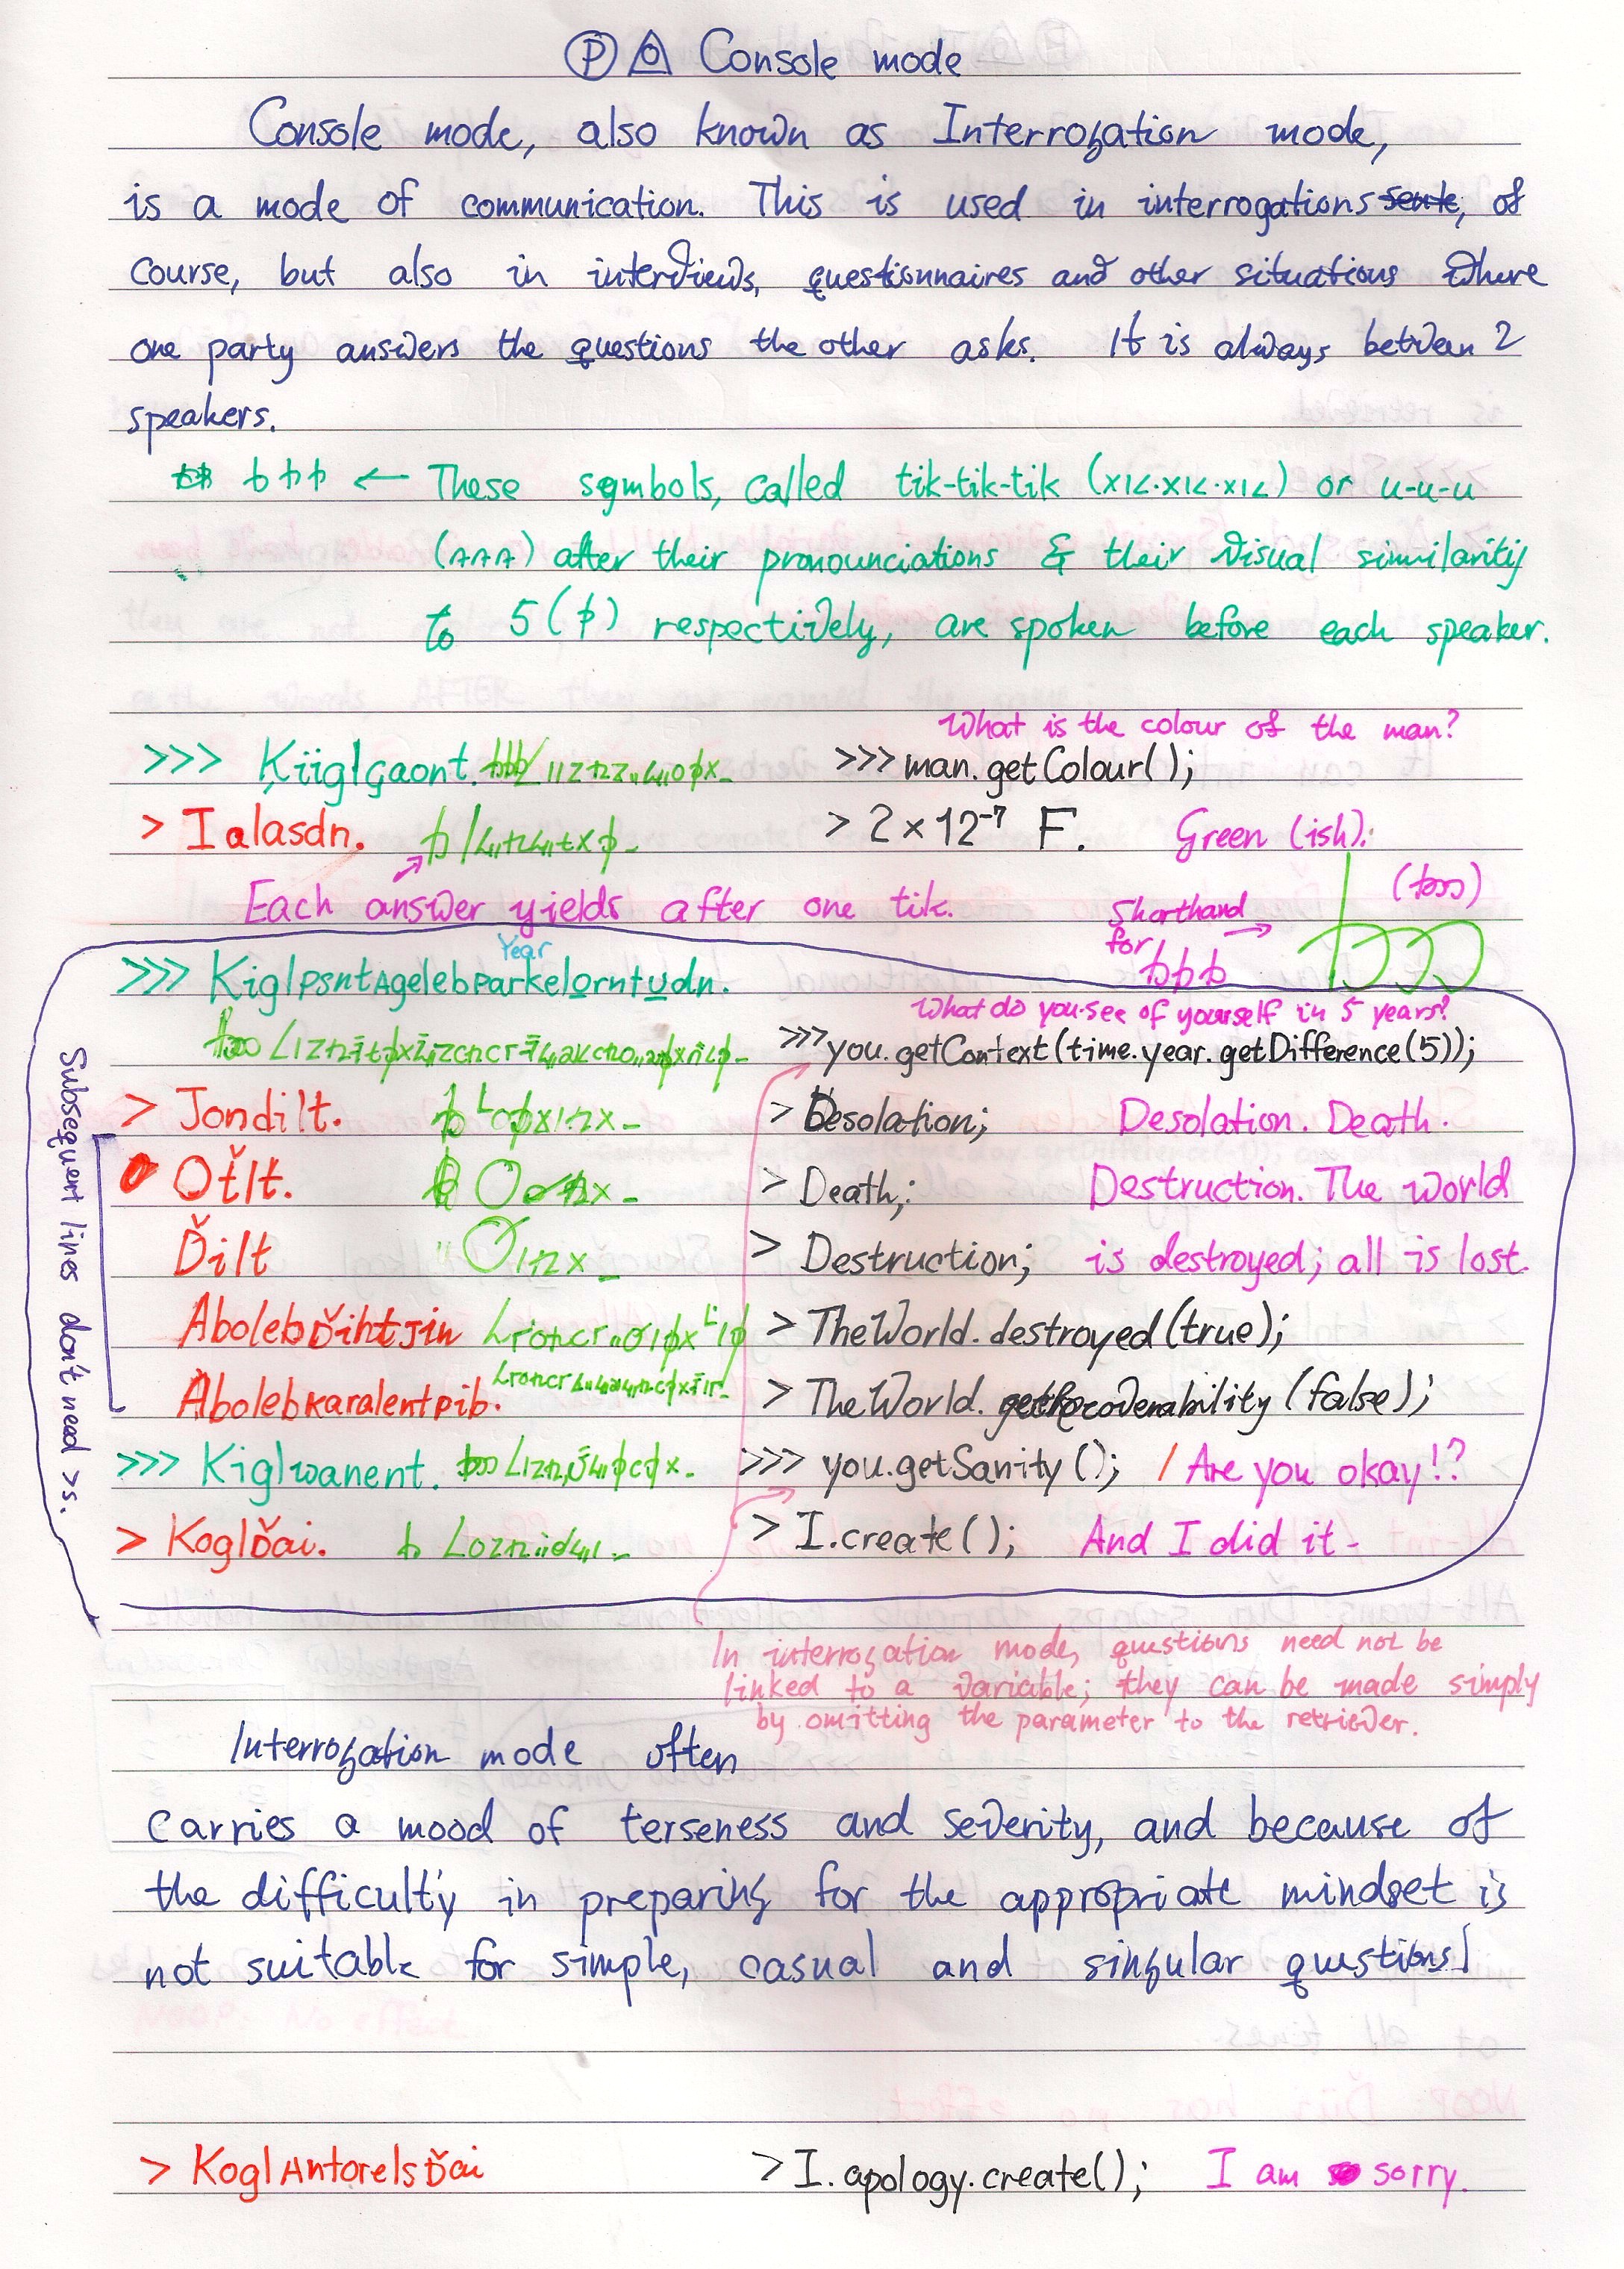 Ⓟ Console mode
Console mode, also known as Interrogation mode,
is a mode of communication. This is used in interrogations, of
course, but also in interviews, questionnaires and other situations where
one party answers the questions the other asks. It is always between 2
speakers.
← These symbols, called tik-tik-tik or u-u-u
after their pronounciations & their visual similarity
to 5 respectively, are spoken before each speaker.
What is the colour of the man?
>>> Kiiglgaont. >>> man.getColour();
> Ialasdn. > 2×12⁻⁷ F. Green (ish).
Each answer yields after one tik. Shorthand for →
Year
>>> KiglpsntAgelebParkelorntudn.
What do you see of yourself in 5 years?
>>> you.getContext(time.year.getDifference(5));
> Jondilt. > Desolation; Desolation. Death.
Otlt. > Death; Destruction. The world
Ďilt > Destruction; is destroyed; all is lost.
AbolebĎihtJin > TheWorld.destroyed(true);
Abolebkaralentpib. > TheWorld. (false);
>>> Kiglwanent. >>> you.getSanity(); / Are you okay!?
> KoglĎai. > I.create(); And I did it-
Subsequent lines don't need >s.
In interrogation mode, questions need not be
linked to a variable; they can be made simply
by omitting the parameter to the retriever.
Interrogation mode often
carries a mood of terseness and severity, and because of
the difficulty in preparing for the appropriate mindset is
not suitable for simple, casual and singular questions.
> KoglAntorelsĎai > I.apology.create(); I am sorry.